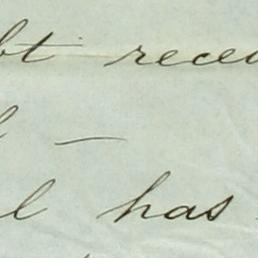 bt recei
—
l has